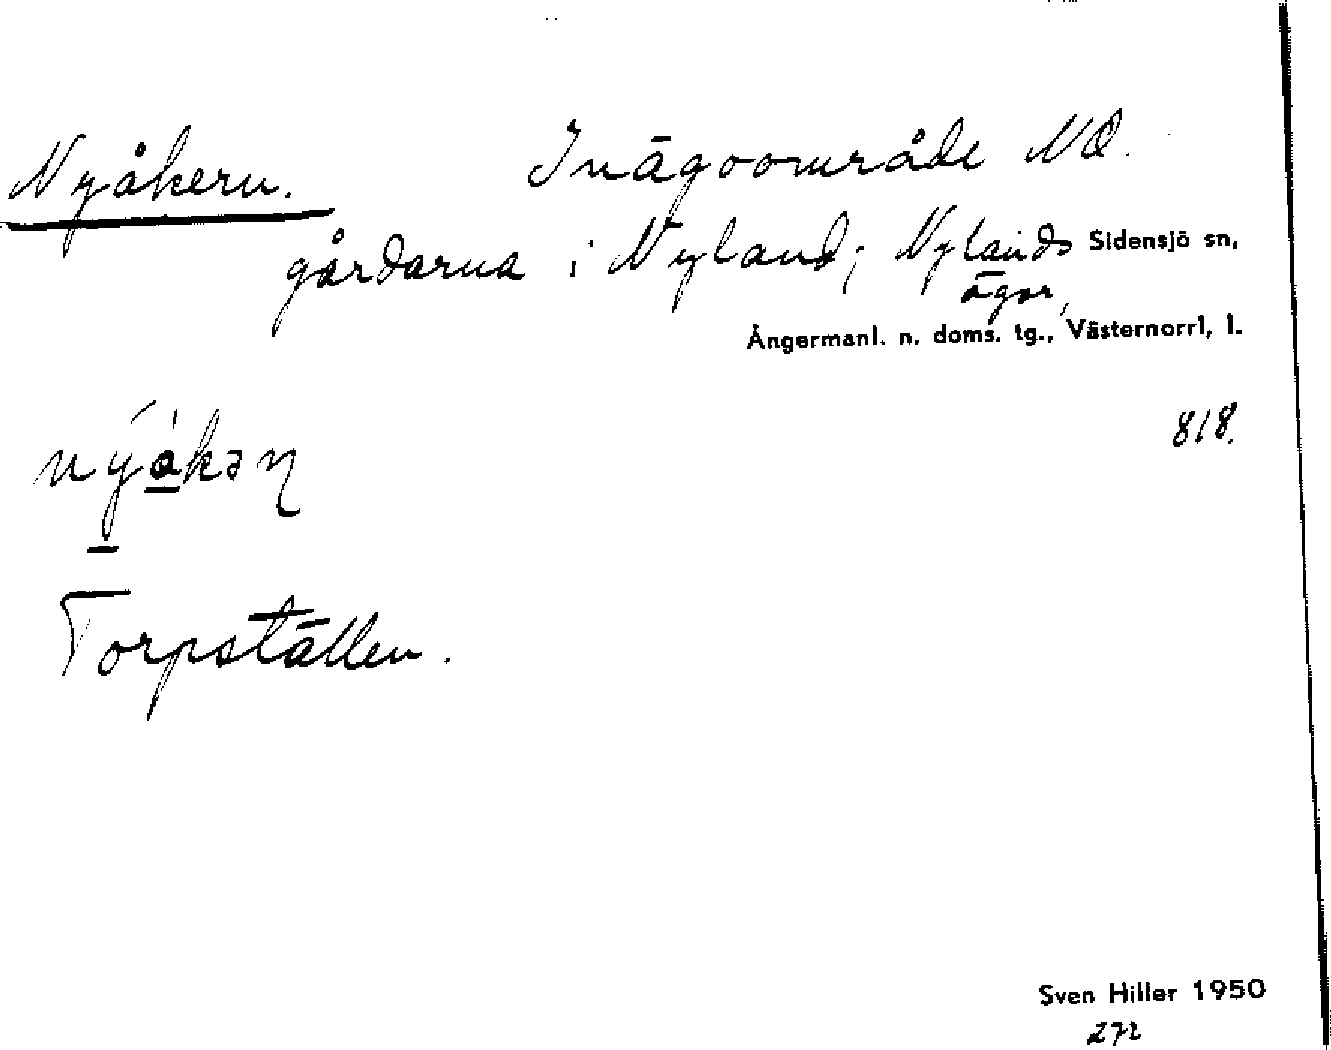 Nyåkern. Inägoområde NO.
gårdarna i Nyland; Nylands Sidensjö sn,
ägor,
Ångermanl. n. doms. tg., Västernorrl, l.
818.
Torpställen.
Sven Hiller 1950
272